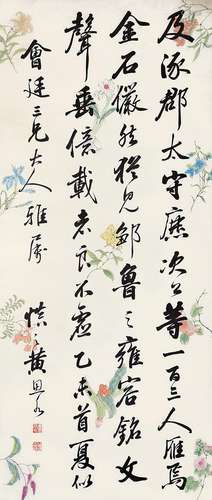 及涿郡太守庶次公等一百三人雁焉
金石儼然猶見鄒魯之雍容銘文
聲垂億載求良不虛乙未首夏似
會廷三兄大人雅屬
慎之黃思永